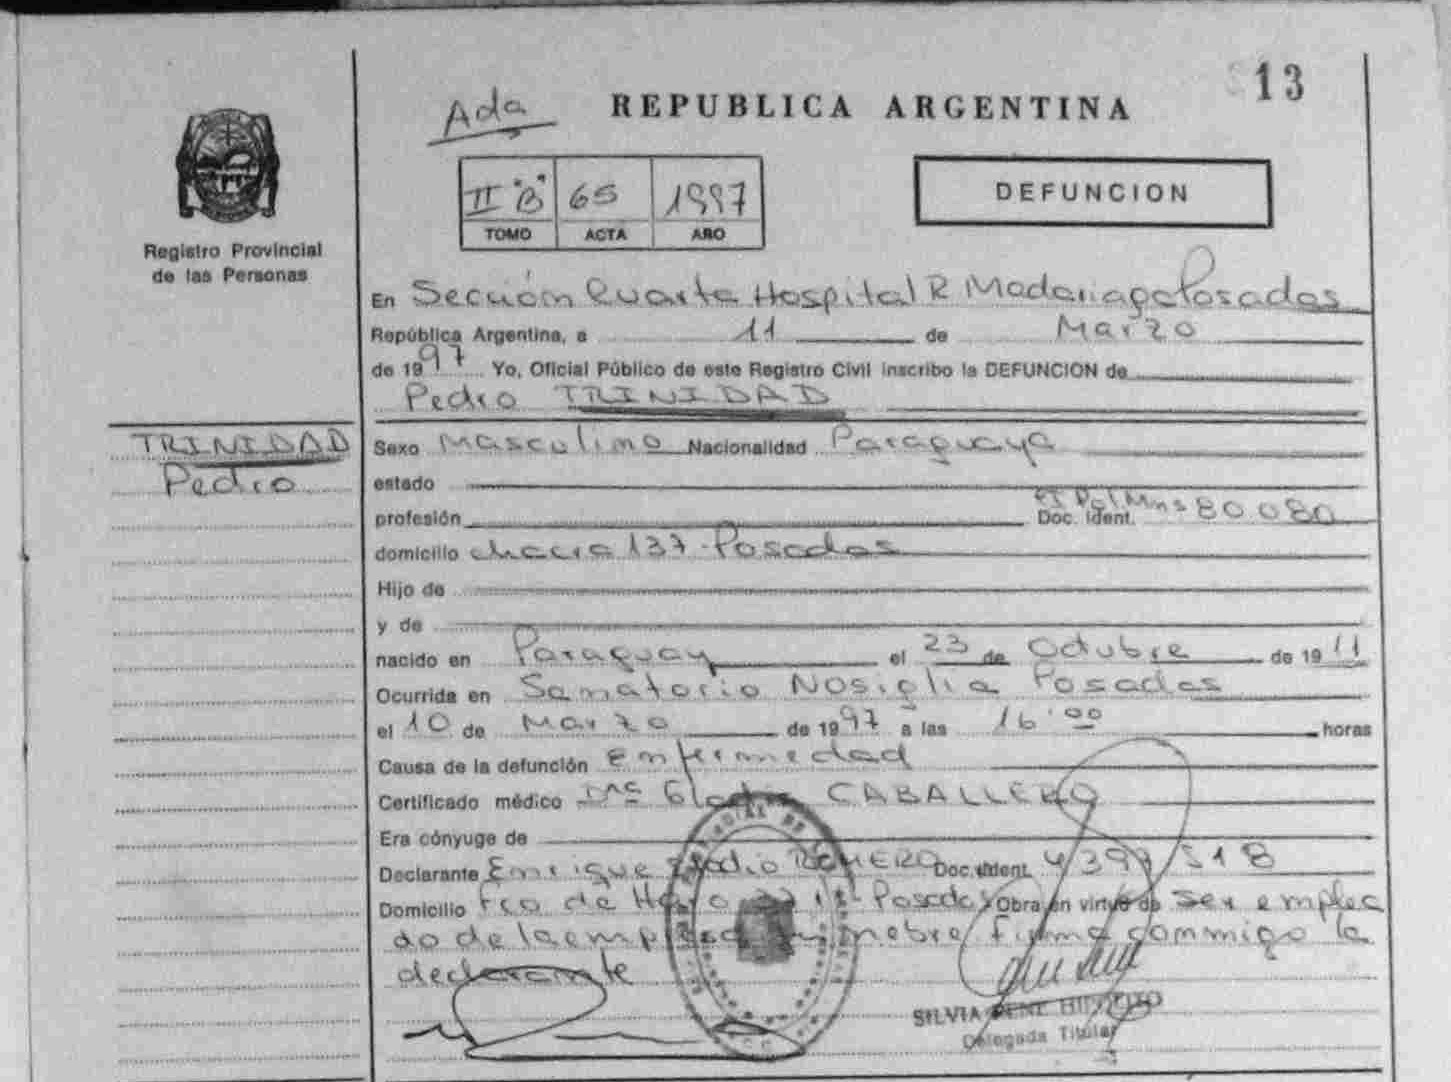 13
Ada
REPUBLICA ARGENTINA
II "B" 65 1997
TOMO ACTA AÑO
DEFUNCION
Registro Provincial
de las Personas
En Sección Cuarta Hospital R Madariaga Posadas
República Argentina, a 11 de Marzo
de 1997 Yo, Oficial Público de este Registro Civil inscribo la DEFUNCION de
Pedro TRINIDAD
TRINIDAD
Pedro
Sexo Masculino Nacionalidad Paraguaya
estado
profesión Doc. Ident. CI Pol Mns 80080
domicilio chacra 137-Posadas
Hijo de
y de
nacido en Paraguay el 23 de Octubre de 1911
Ocurrida en Sanatorio Nosiglia Posadas
el 10 de Marzo de 1997 a las 16:00 horas
Causa de la defunción enfermedad
Certificado médico CABALLERO
Era cónyuge de
Declarante Enrique ROMERO Doc. Ident. 4397518
Domicilio Fco de Haro Posadas Obra en virtud de ser emplea
do de la empresa funebre firma conmigo la
declarante
SILVIA IRENE HIPOLITO
Delegada Titular